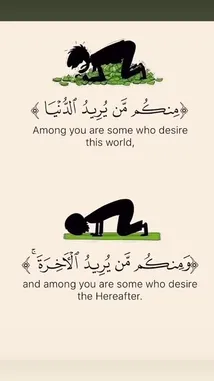 ﴿مِنكُم مَّن يُرِيدُ ٱلدُّنْيَا﴾
Among you are some who desire
this world,
﴿وَمِنكُم مَّن يُرِيدُ ٱلْأَخِرَةَ ۚ﴾
and among you are some who desire
the Hereafter.